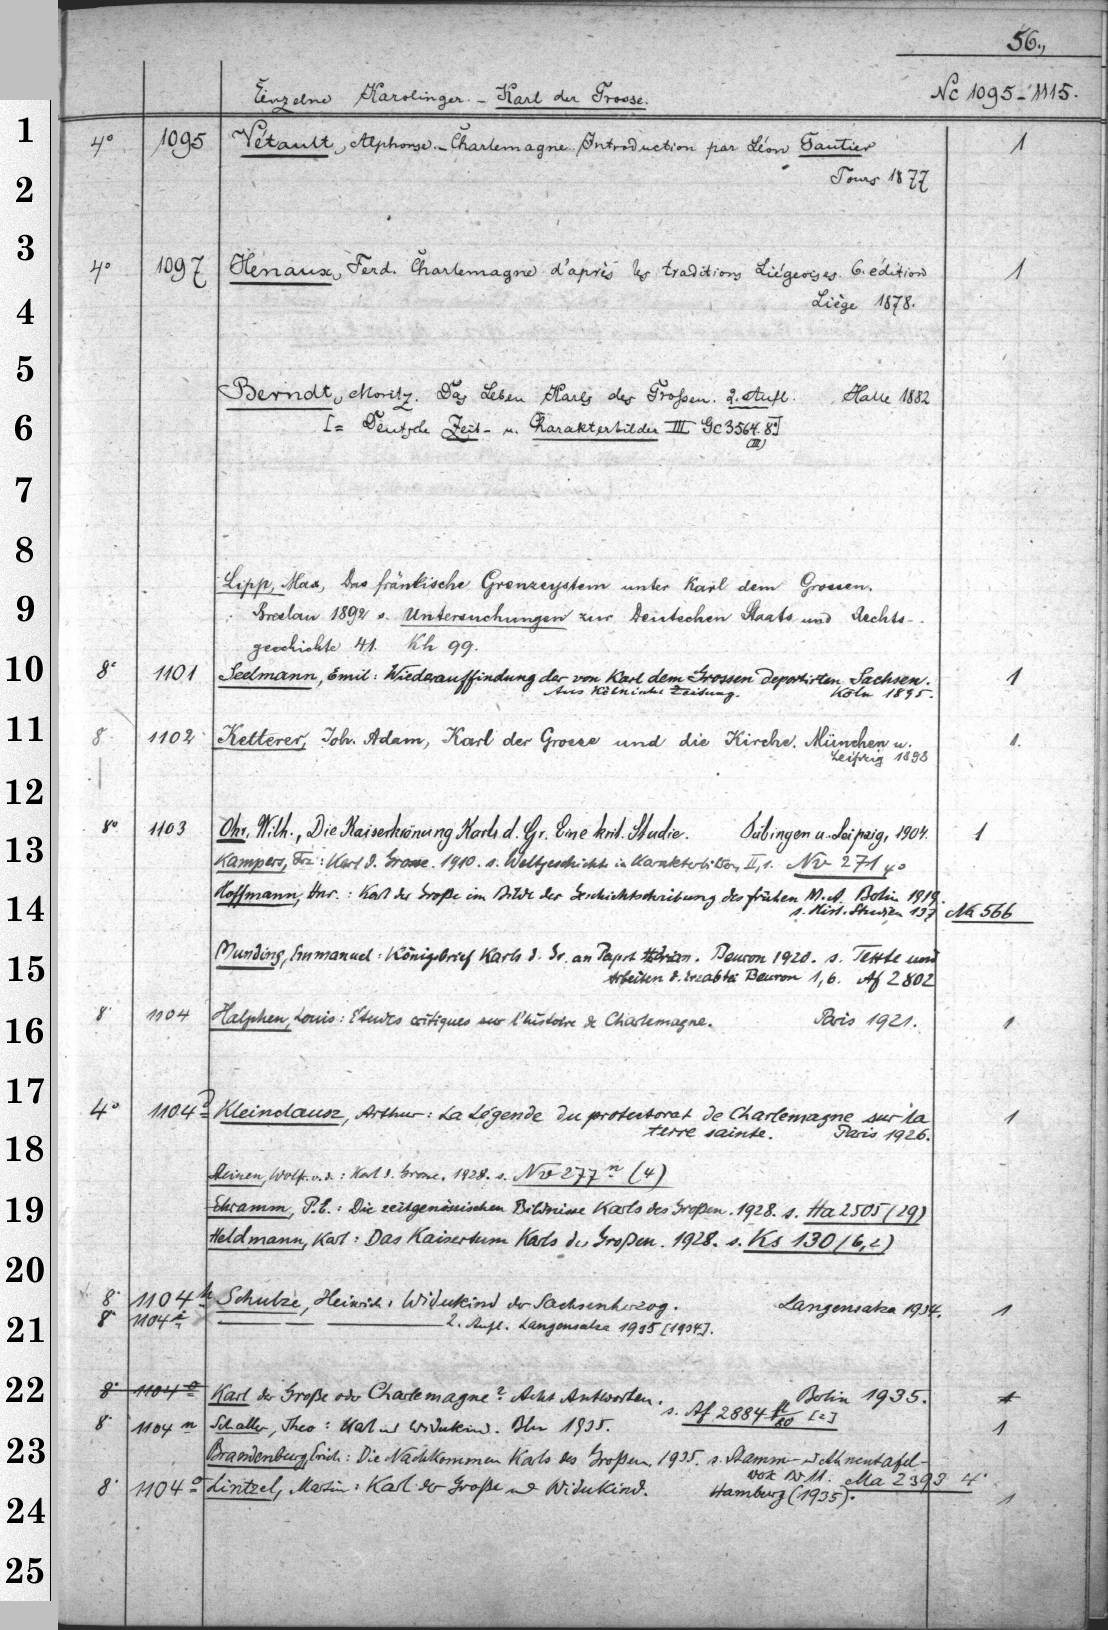 56.,
Einzelne Karolinger. - Karl der Grosse.
Nc 1095-1115.
1
4° 1095 Vétault, Alphonse. - Charlemagne. Introduction par Léon Gautier 1
2
Tours 1877
3
4° 1097 Henaux, Ferd. Charlemagne d'après les traditions Liégeoises. 6. édition 1
4
Liège 1878.
5
Berndt, Moritz. Das Leben Karls des Großen. 2. Aufl. Halle 1882
6
[= Deutsche Zeit- u. Charakterbilder III Gc 3564. 8°]
(III)
7
8
Lipp, Max, Das fränkische Grenzsystem unter Karl dem Grossen.
9
Breslau 1892 s. Untersuchungen zur Deutschen Staats und Rechts-
geschichte 41. Kh 99.
10
8° 1101 Seelmann, Emil: Wiederauffindung der von Karl dem Grossen deportirten Sachsen. 1
Aus Kölnische Zeitung. Köln 1895.
11
8 1102 Ketterer, Joh. Adam, Karl der Grosse und die Kirche. München u. 1.
Leipzig 1898
12
8° 1103 Ohr, Wilh., Die Kaiserkrönung Karls d. Gr. Eine krit. Studie. Tübingen u. Leipzig, 1904. 1
13
Kampers, Frz: Karl d. Grosse. 1910. s. Weltgeschichte in Karakterbildern, II, 1. Nv 271 4°
Hoffmann, Hnr.: Karl der Große im Bilde der Geschichtschreibung des frühen M.A. Berlin 1919.
14
s. Hist. Studien 137 Na 566
Munding, Emmanuel: Königsbrief Karls d. Gr. an Papst Hadrian. Beuron 1920. s. Texte und
15
Arbeiten d. Erzabtei Beuron 1,6. Af 2802
16
8° 1104 Halphen, Louis: Etudes critiques sur l'histoire de Charlemagne. Paris 1921. 1
17
4° 1104 Kleinclausz, Arthur: La Légende du protectorat de Charlemagne sur la 1
terre sainte. Paris 1926.
18
Steinen, Wolfr. v. d.: Karl d. Grosse. 1928. s. Nv 277 n (4)
19
Schramm, P.E.: Die zeitgenössischen Bildnisse Karls des Großen. 1928. s. Ha 2505 (29)
Heldmann, Karl: Das Kaisertum Karls des Großen. 1928. s. Ks 130 (6,2)
20
8° 1104 h Schulze, Heinrich: Widukind der Sachsenherzog. Langensalza 1934. 1
21
8° 1104 i 2. Aufl. Langensalza 1935 [1934].
22
8° 1104 Karl der Große oder Charlemagne? Acht Antworten. Berlin 1935. 1
s. Af 2884 [2]
8° 1104 n Schaller, Theo: Karl und Widukind. Bln 1935. 1
23
Brandenburg, Erich: Die Nachkommen Karls des Großen. 1935. s. Stamm- u. Ahnentafel-
werk IV 11. Ma 2393 4°
8° 1104 o Lintzel, Martin: Karl der Große und Widukind. Hamburg (1935). 1
24
25